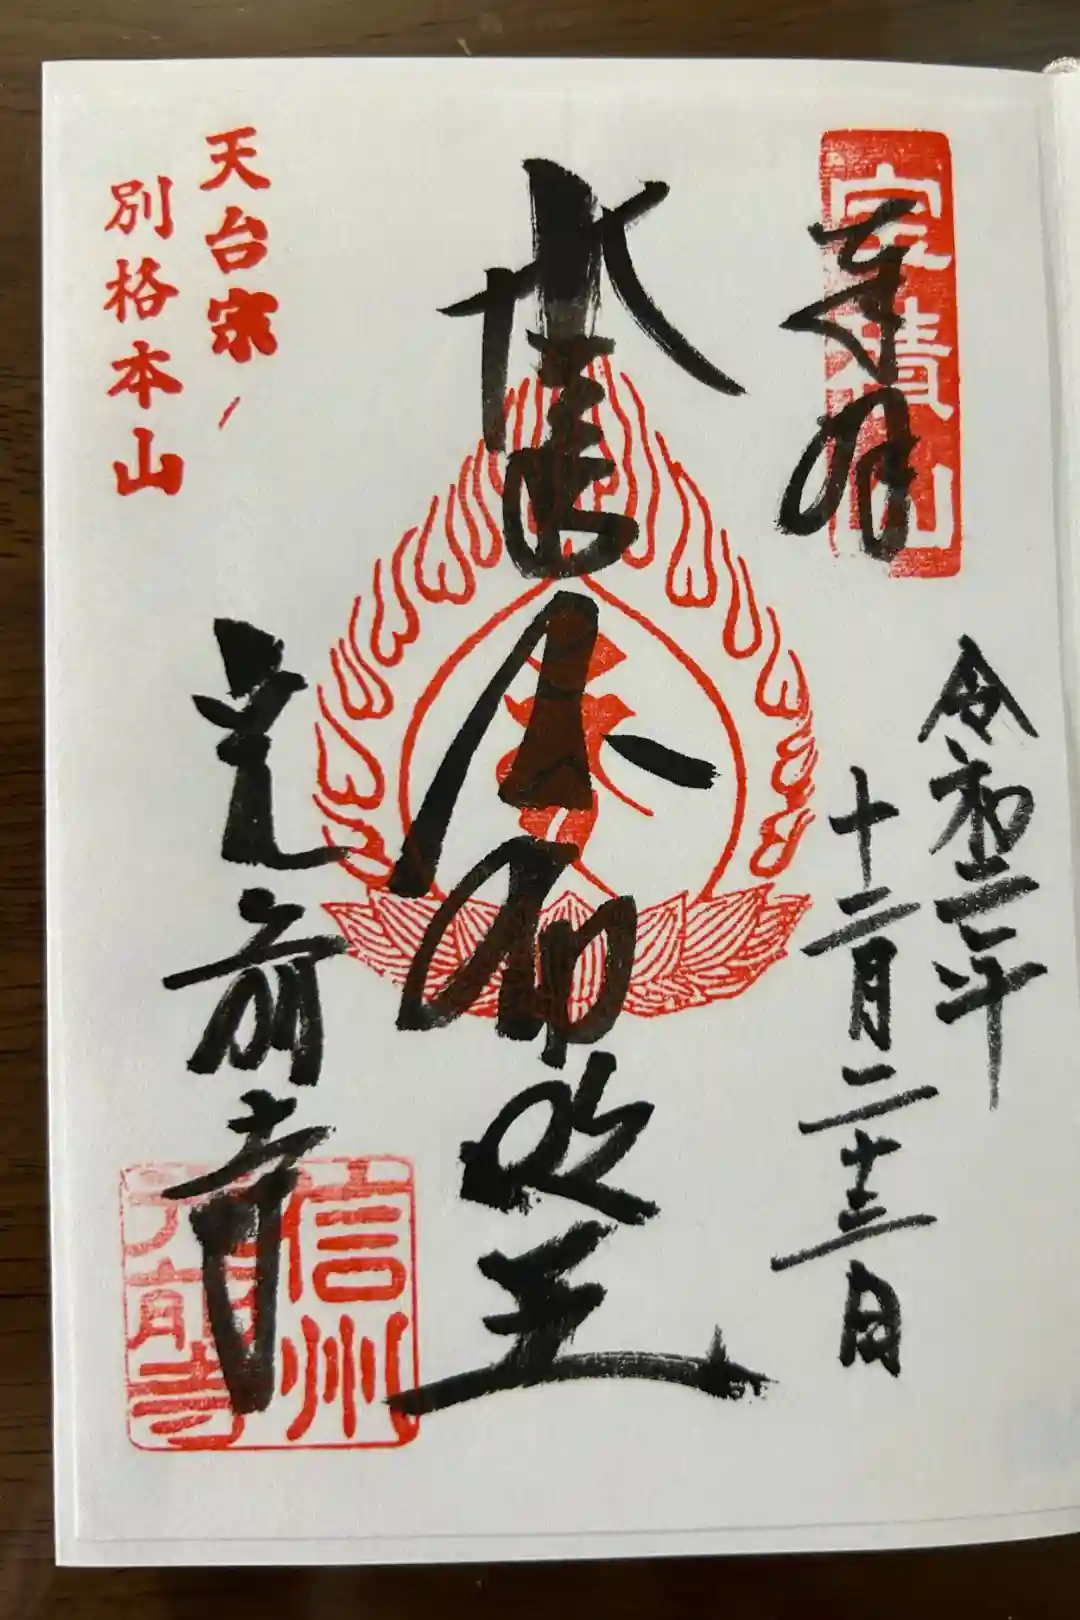 宝積山
奉拝
令和二年
十二月二十三日
不動明王
天台宗
別格本山
光前寺
信州
光前寺